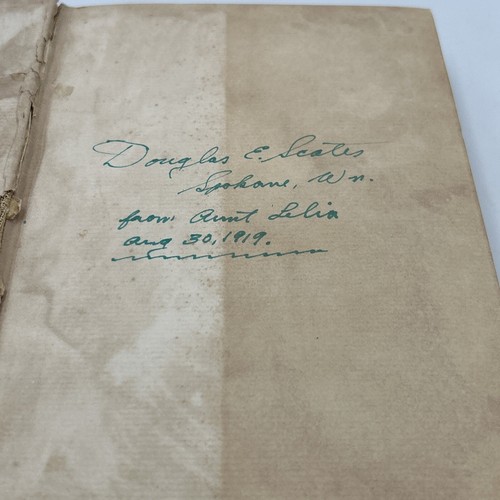 Douglas E. Scates
Spokane, Wn.
from Aunt Lelia
Aug 30, 1919.